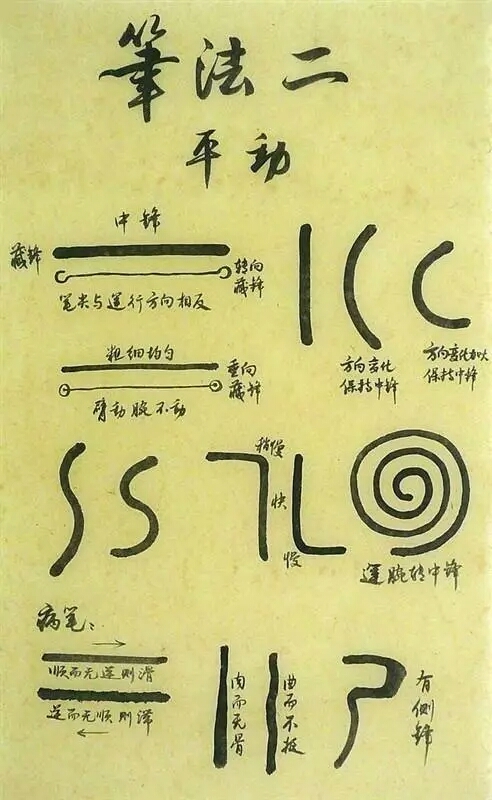 筆法二
平動
中鋒
藏鋒
转向
藏鋒
笔尖与运行方向相反
粗细均匀
垂向
藏鋒
臂动腕不动
方向变化
保持中鋒
方向变化加大
保持中鋒
稍慢
快
慢
运腕转中鋒
病笔：
顺而无逆则滑
逆而无顺则滞
肉而无骨
曲而不挺
有侧鋒